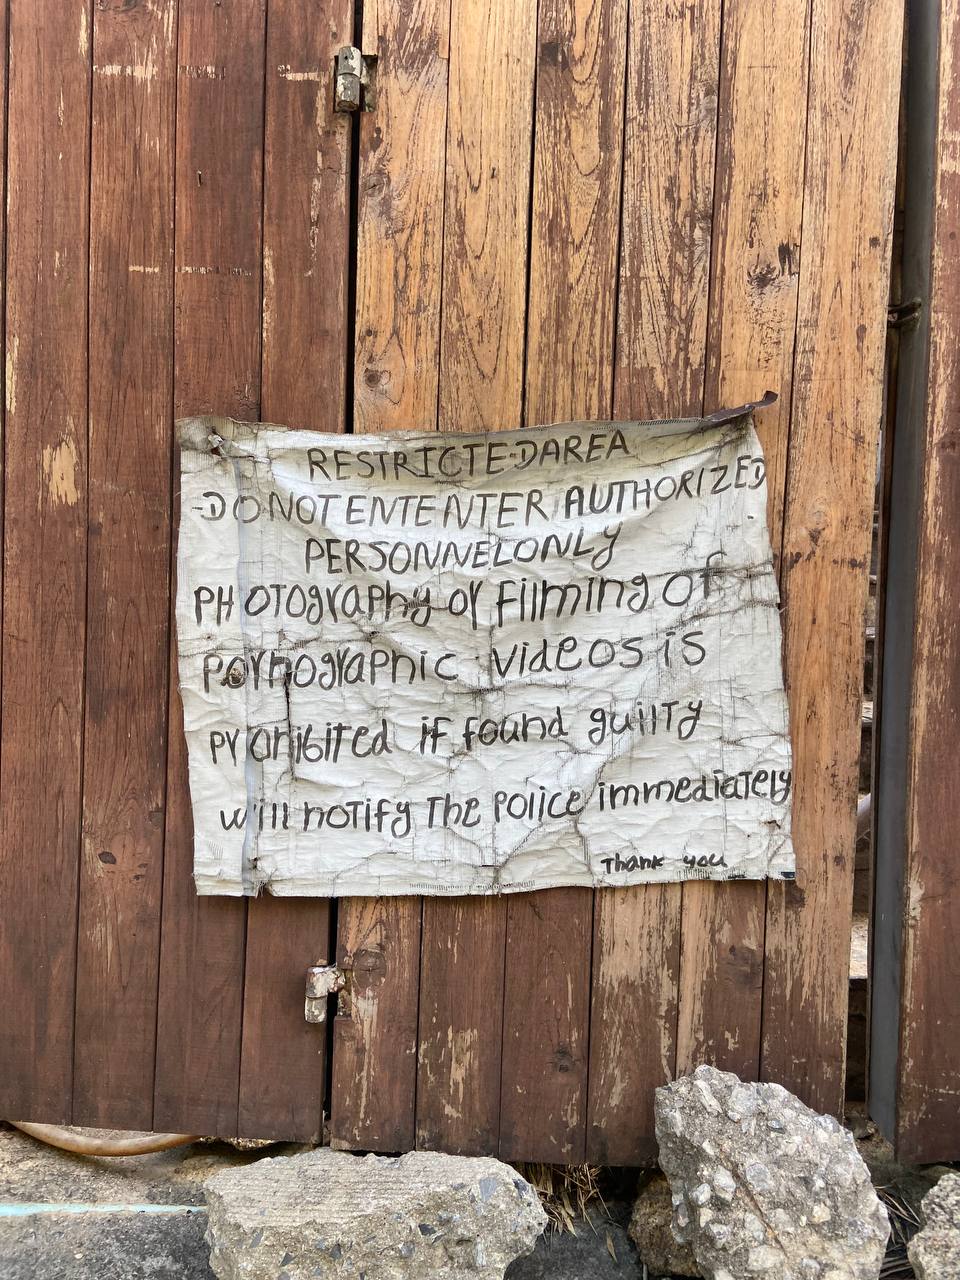 RESTRICTE-DAREA
-DO NOT ENTE NTER AUTHORIZED
PERSONNELONLY
PHOTOGRAPHY OR FILMING OF
PORNOGRAPHIC VIDEOS IS
PROHIBITED IF FOUND GUILTY
WILL NOTIFY THE POLICE IMMEDIATELY
Thank you